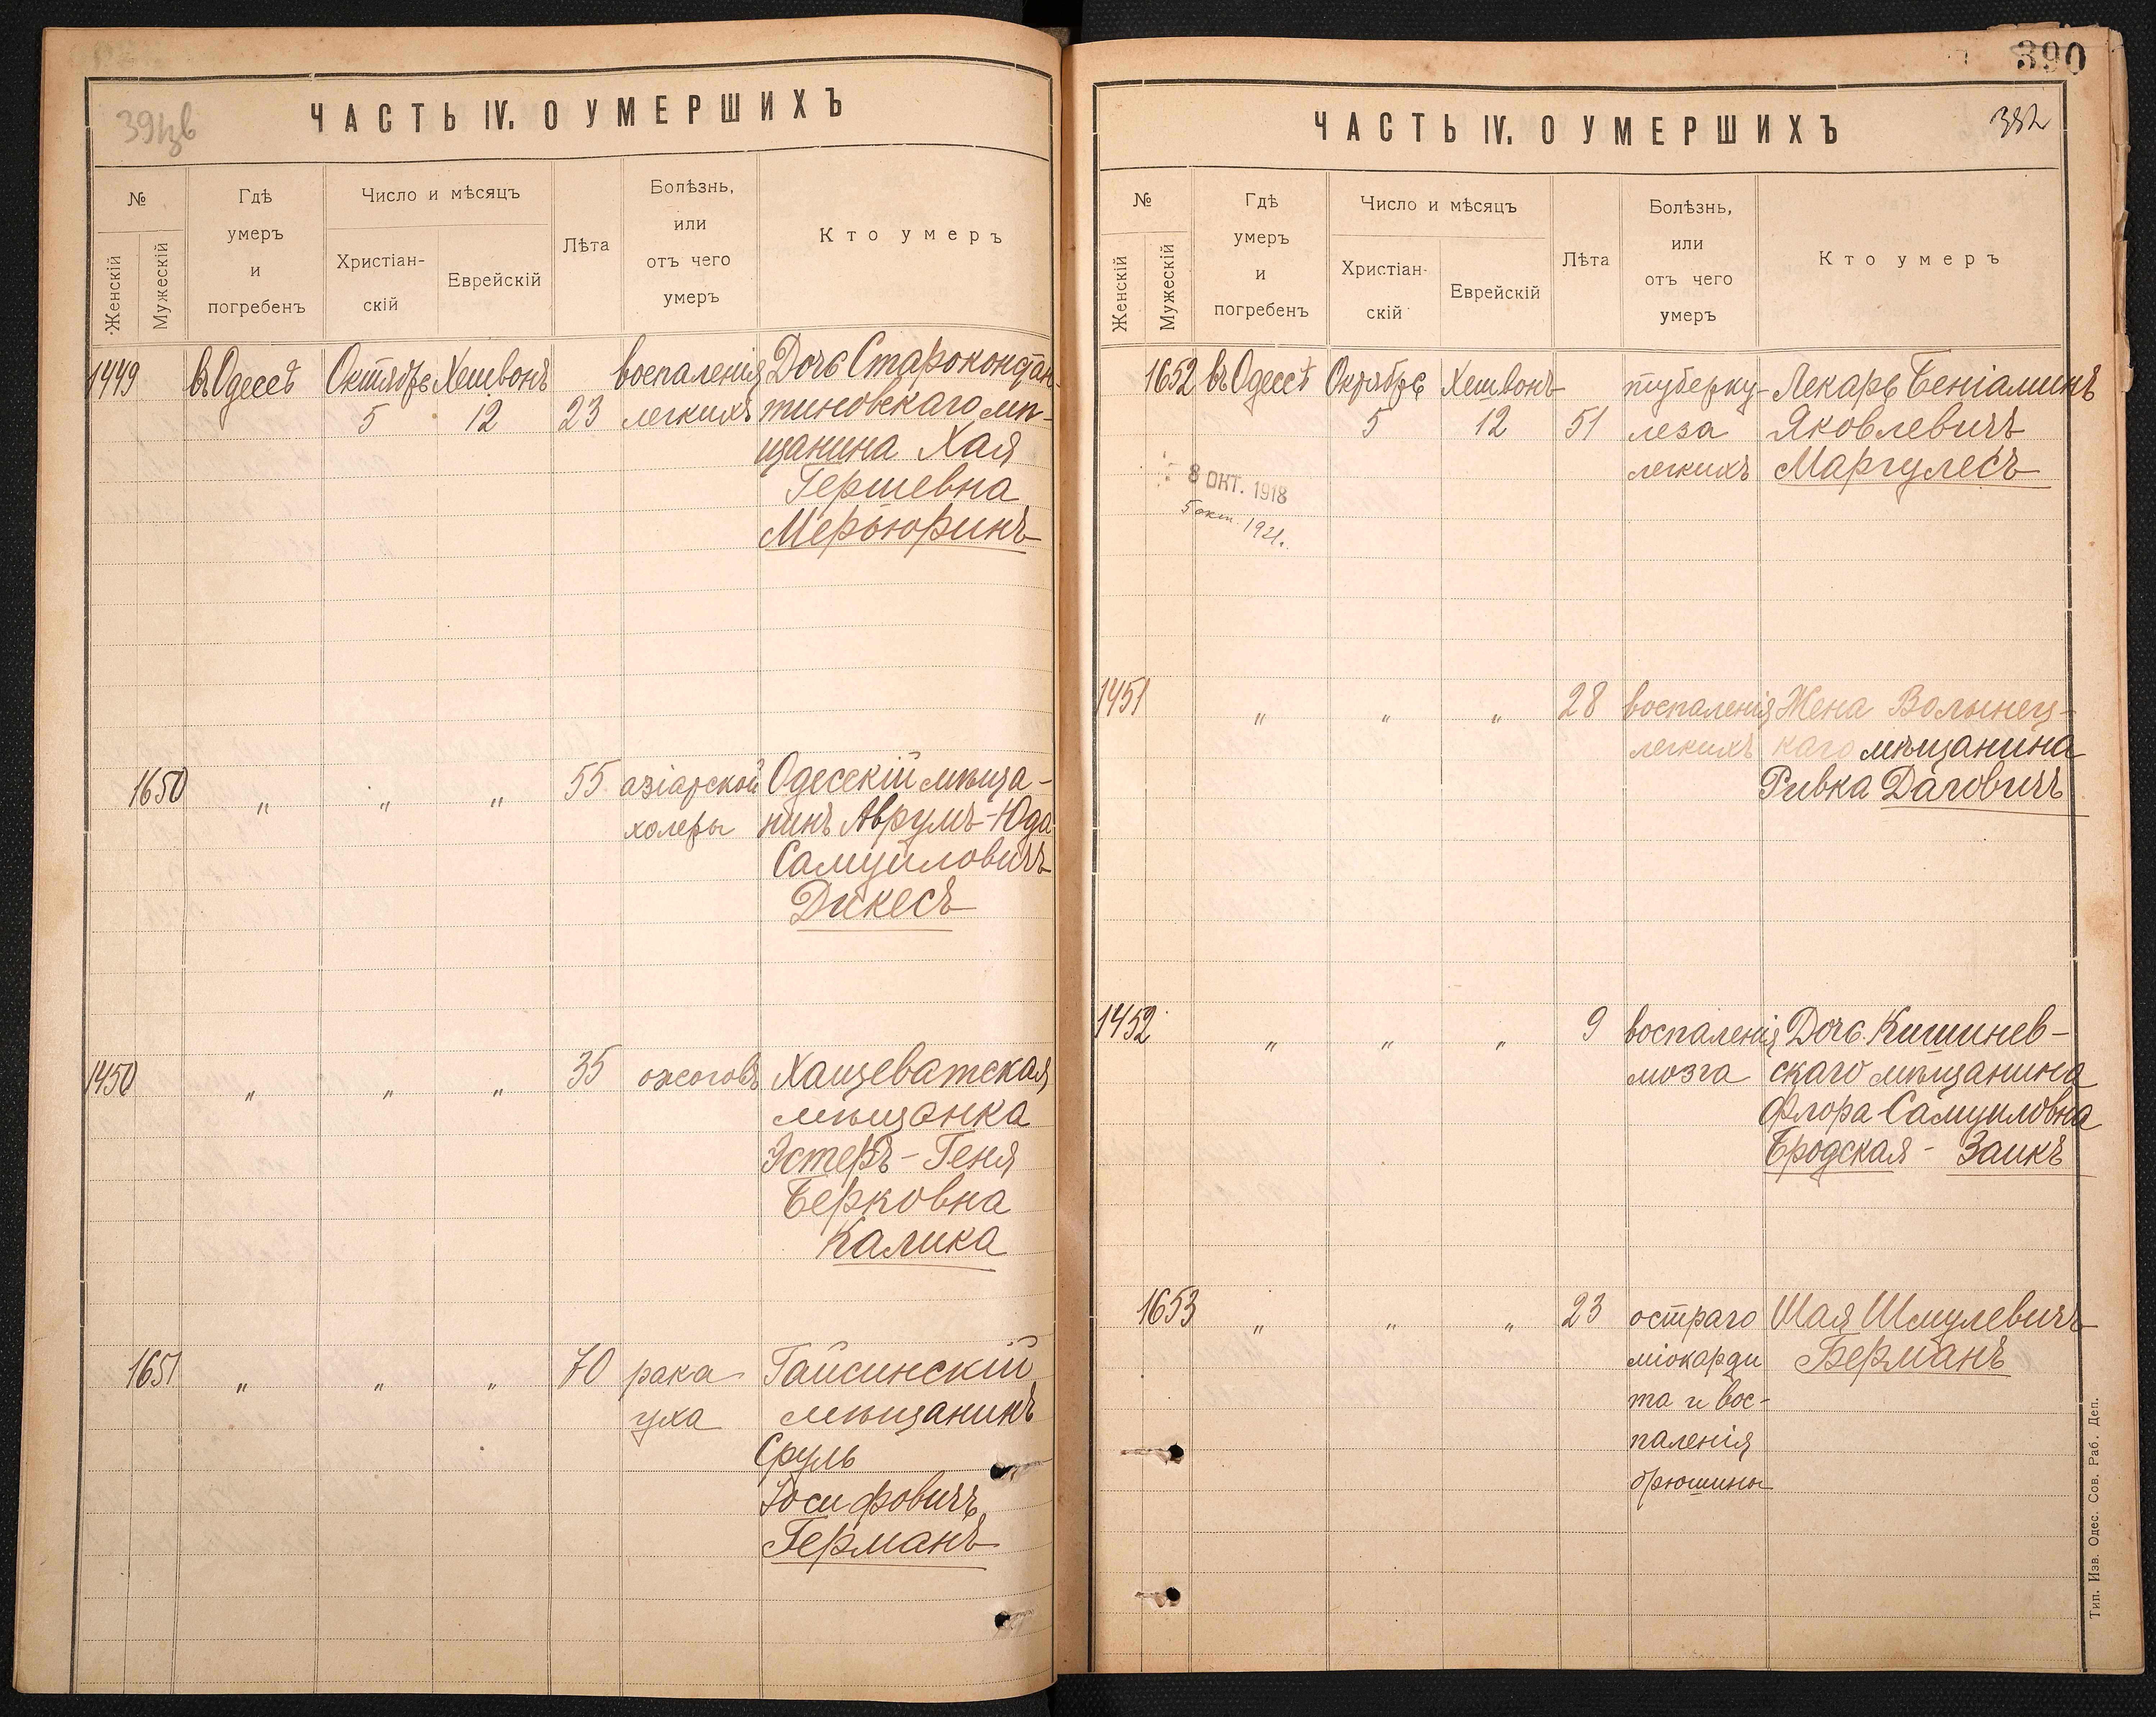 39цв
ЧАСТЬ IV. О УМЕРШИХЪ
№
Женскій
Мужескій
Гдѣ
умеръ
и
погребенъ
Число и мѣсяцъ
Христіан-
скій
Еврейскій
Лѣта
Болѣзнь,
или
отъ чего
умеръ
Кто умеръ
1449 въ Одессѣ Октябрь Хешвонъ воспаленія Дочь Староконстан-
5 12 23 легкихъ тиновскаго мѣ-
щанина Хая
Гершевна
Мерьюринъ
1650 " " " 55 азіатской Одесскій мѣща-
холеры нинъ Аврумъ-Юда
Самуиловичъ
Дикесъ
1450 " " " 35 ожоговъ Хащеватская
мѣщанка
Эстеръ-Геня
Берковна
Калика
1651 " " " 70 рака Гайсинскій
уха мѣщанинъ
Сруль
Іосифовичъ
Германъ
390
382
ЧАСТЬ IV. О УМЕРШИХЪ
№
Женскій
Мужескій
Гдѣ
умеръ
и
погребенъ
Число и мѣсяцъ
Христіан-
скій
Еврейскій
Лѣта
Болѣзнь,
или
отъ чего
умеръ
Кто умеръ
1652 въ Одессѣ Октябрь Хешвонъ туберку- Лекарь Беніаминъ
5 12 51 леза Яковлевичъ
легкихъ Маргулесъ
8 ОКТ. 1918
5 окт. 1921.
1451 " " " 28 воспаленія Жена Волынец-
легкихъ каго мѣщанина
Ривка Даговичъ
1452 " " " 9 воспаленія Дочь Кишинев-
мозга скаго мѣщанина
Флора Самуиловна
Бродская - Заикъ
1653 " " " 23 остраго Шая Шмулевичъ
міокарди Берманъ
та и вос-
паленія
брюшины
Тип. Изв. Одес. Сов. Раб. Деп.